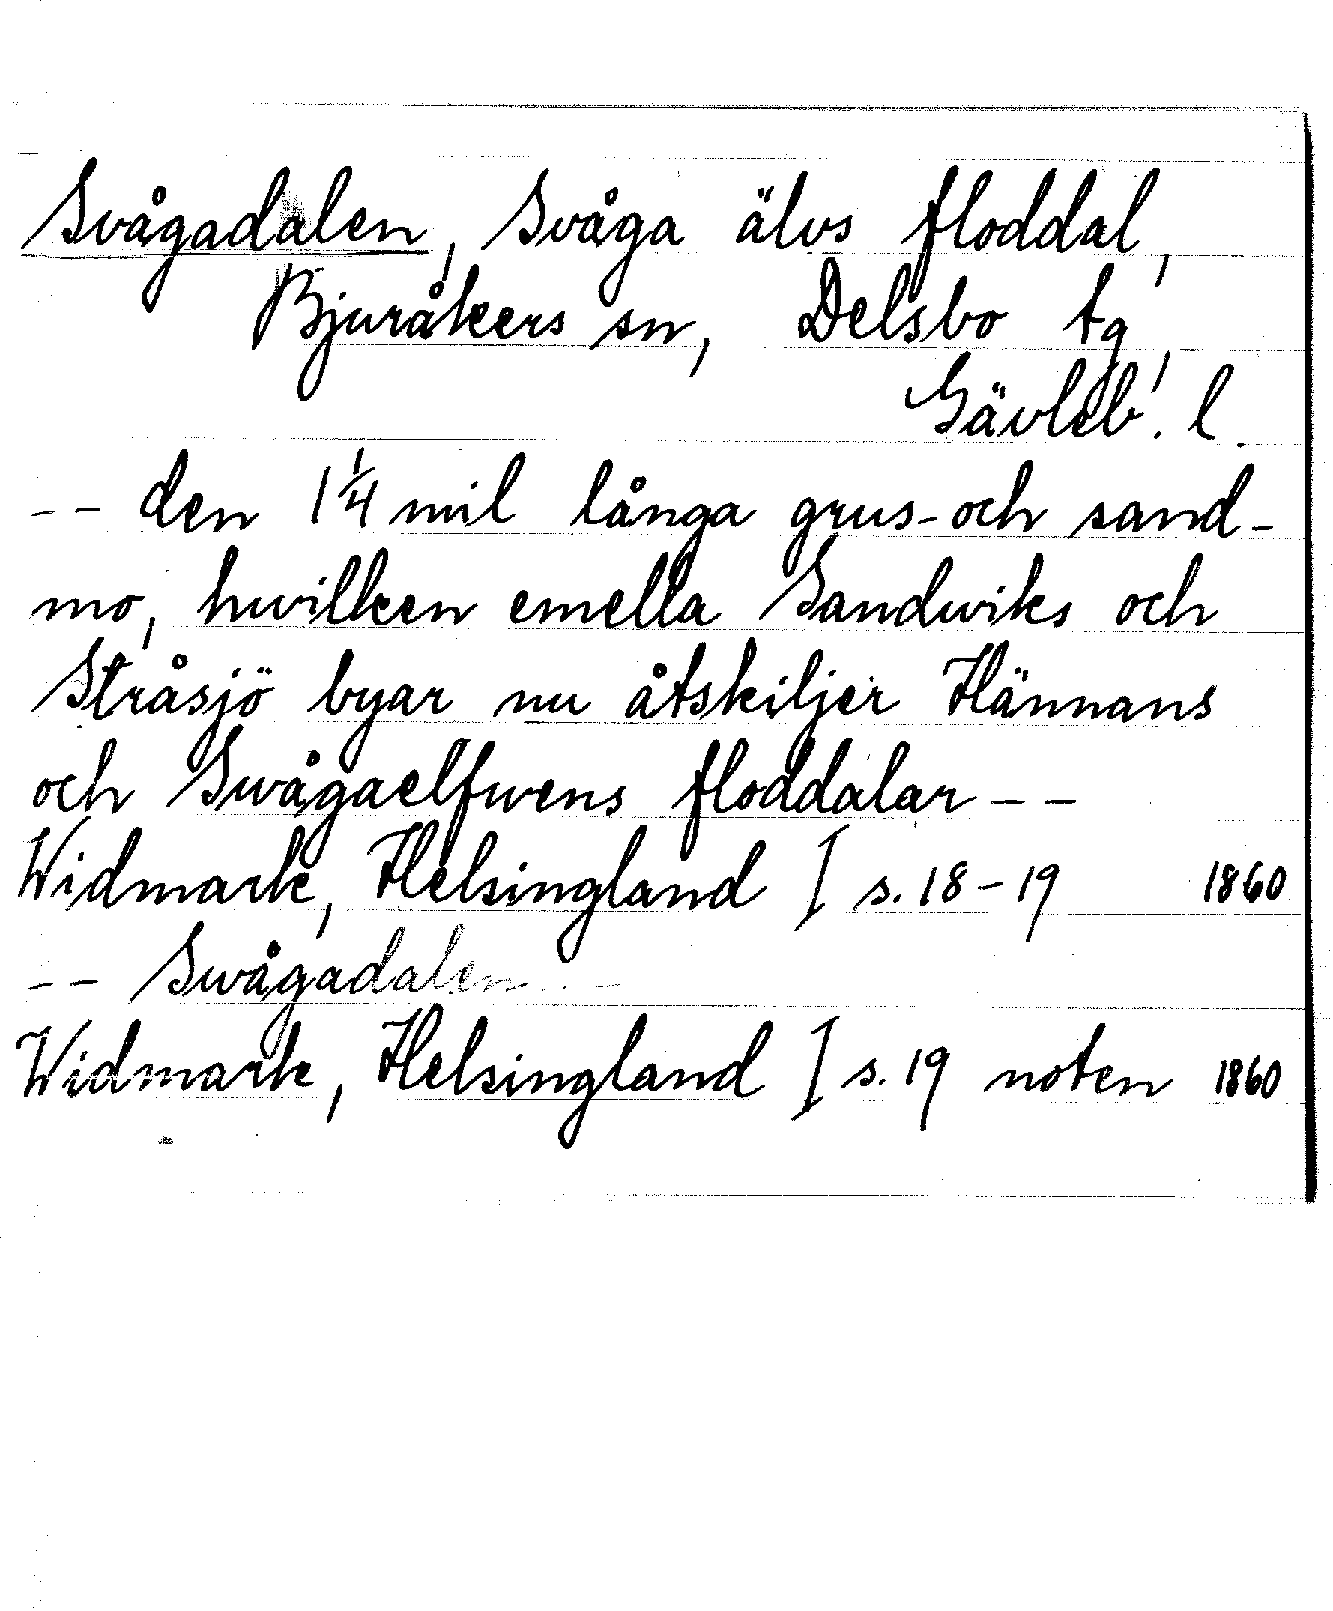 Svågadalen, Svåga älvs floddal,
Bjuråkers sn, Delsbo tg,
Gävleb. l.
-- den 1 1/4 mil långa grus- och sand-
mo, hwilken emella Sandwiks och
Stråsjö byar nu åtskiljer Hännans
och Swågaelfwens floddalar --
Widmark, Helsingland I s. 18-19 1860
-- Swågadalen --
Widmark, Helsingland I s. 19 noten 1860